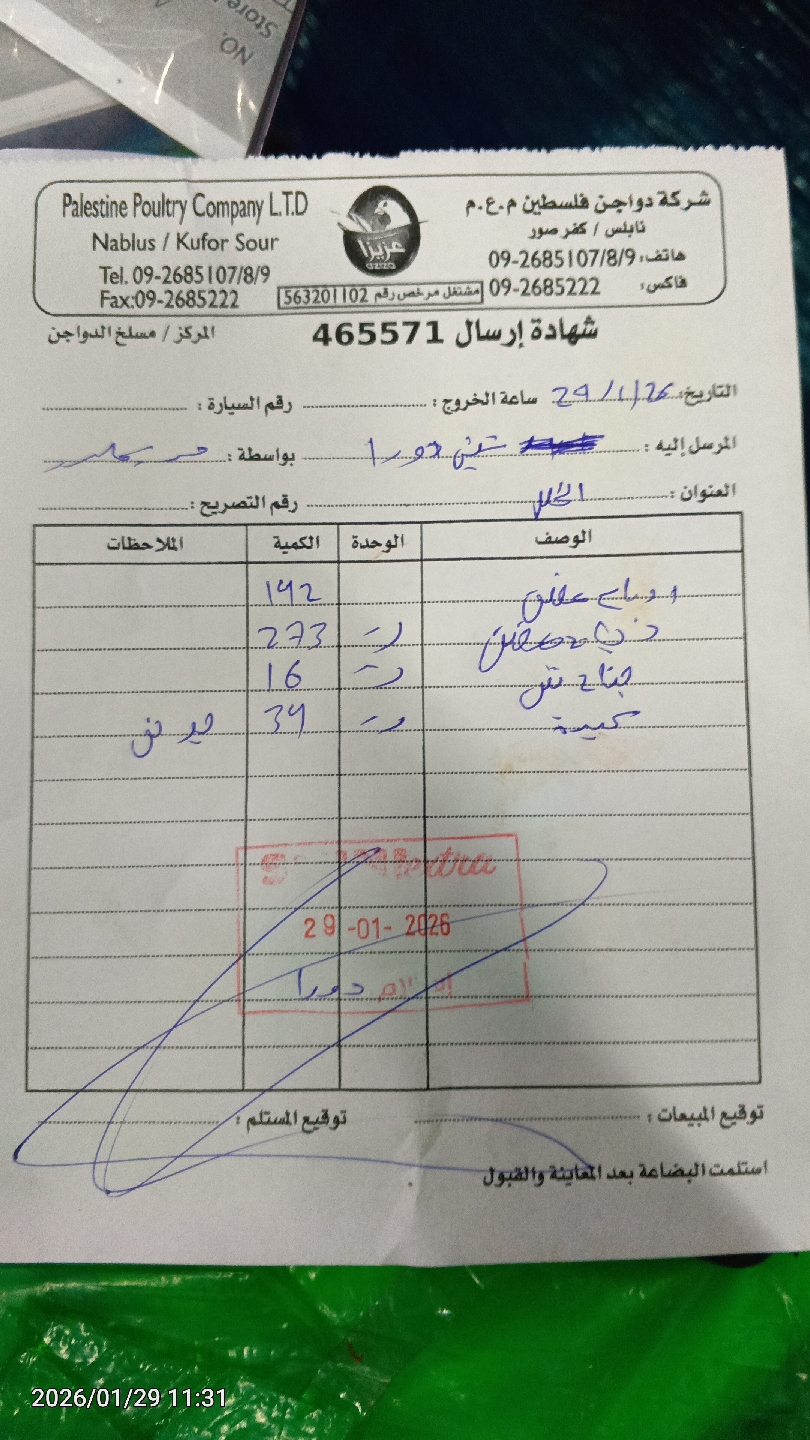 Store
NO.
Palestine Poultry Company L.T.D
Nablus / Kufor Sour
Tel. 09-2685107/8/9
Fax:09-2685222
عزيزا
AZIZA
شركة دواجن فلسطين م.ع.م
نابلس / كفر صور
هاتف: 09-2685107/8/9
فاكس: 09-2685222
مشتغل مرخص رقم 563201102
شهادة إرسال 465571
المركز / مسلخ الدواجن
التاريخ: 29/1/26 ساعة الخروج: رقم السيارة:
المرسل إليه: دورا بواسطة:
العنوان: الخليل رقم التصريح:
الوصف الوحدة الكمية الملاحظات
192
273
جناح 16
كبدة 39
29-01-2026
دورا
توقيع المبيعات: توقيع المستلم:
استلمت البضاعة بعد المعاينة والقبول
2026/01/29 11:31